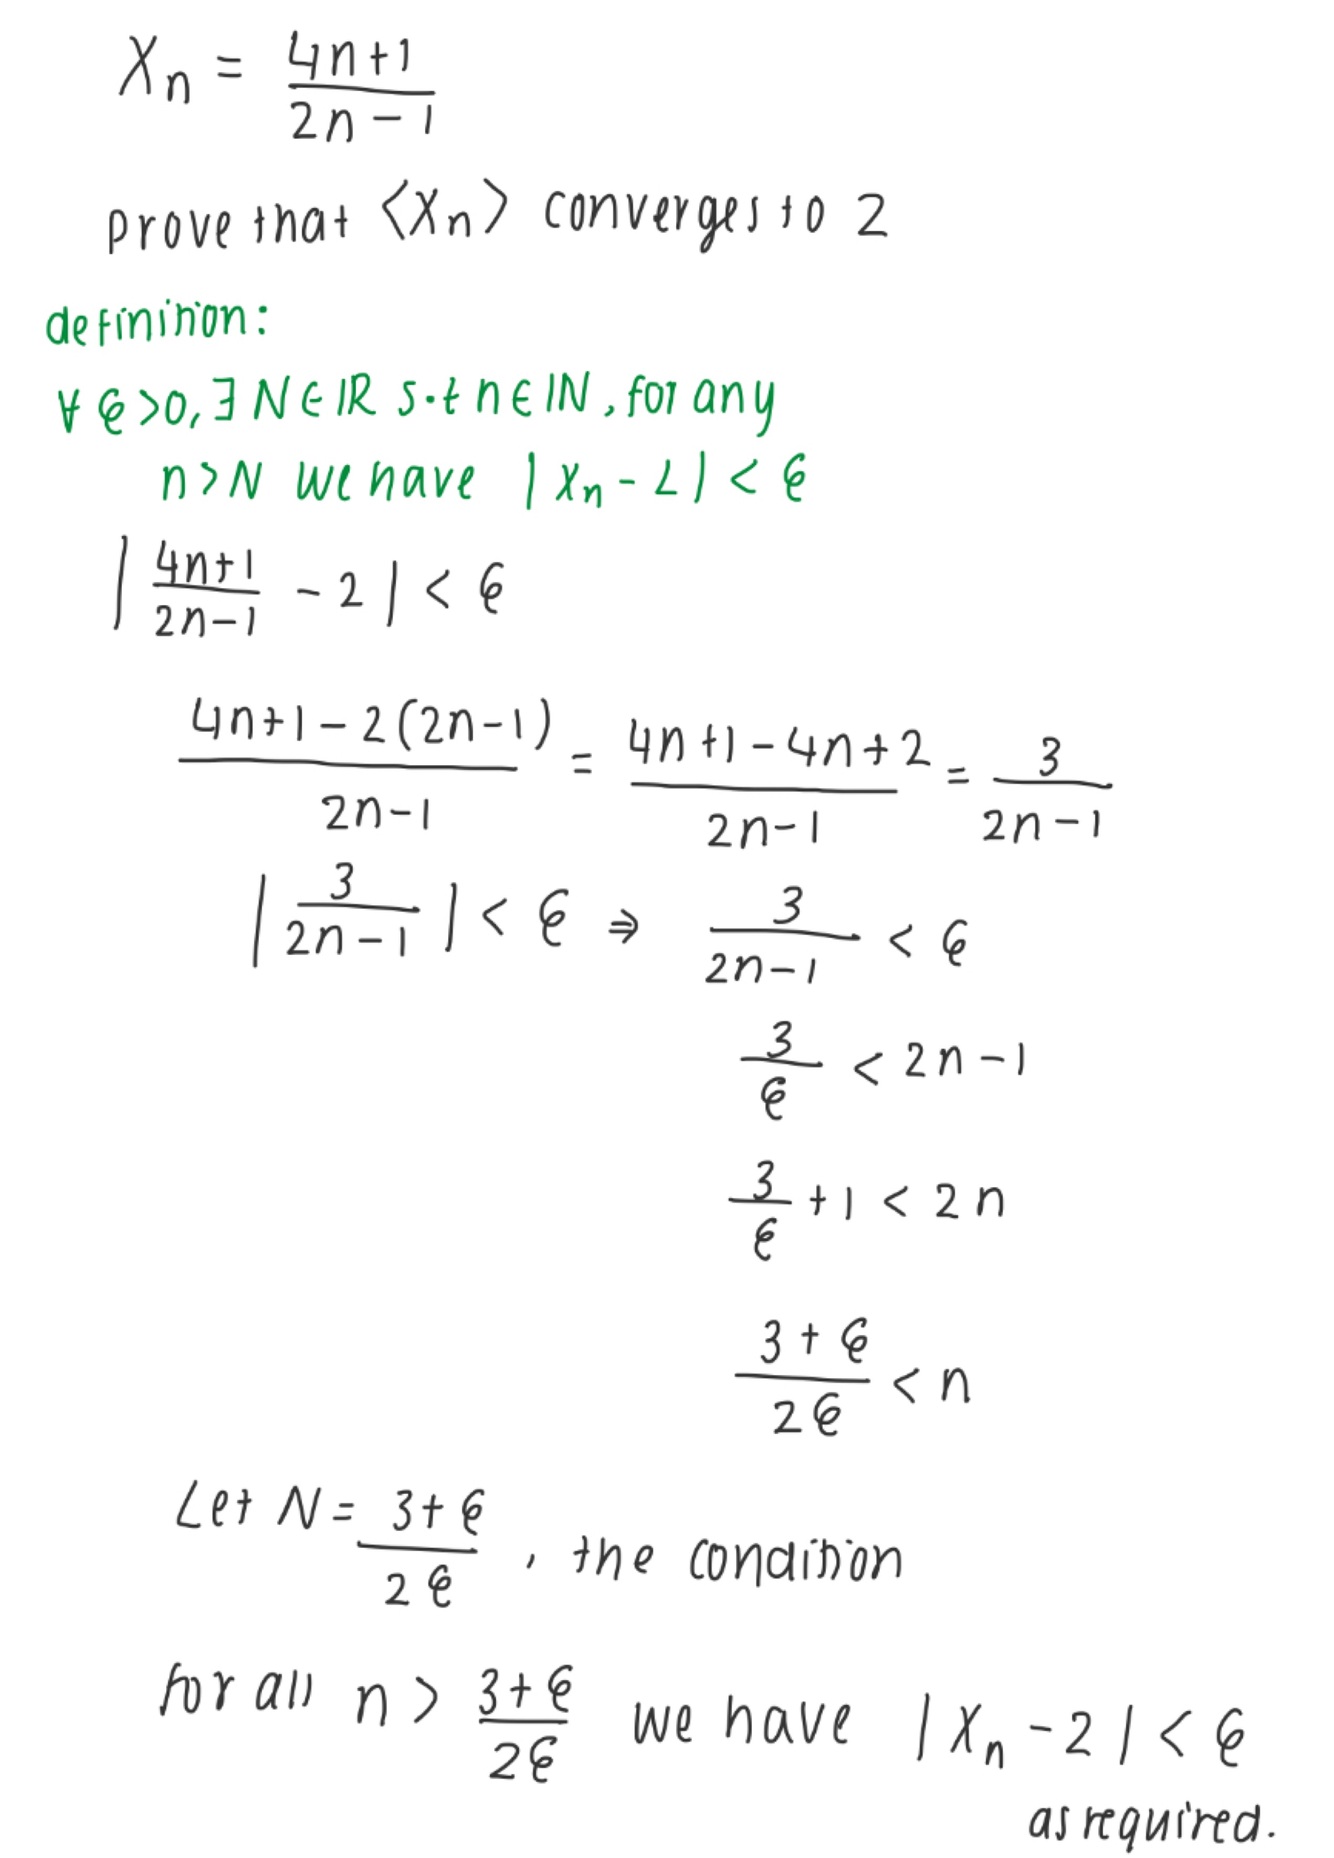 Xn = 4n+1 / 2n-1
prove that <Xn> converges to 2
definition:
∀ ϵ>0, ∃ N∈IR s.t n∈IN, for any
n>N we have |Xn - L| < ϵ
| 4n+1 / 2n-1 - 2 | < ϵ
4n+1-2(2n-1) / 2n-1 = 4n+1-4n+2 / 2n-1 = 3 / 2n-1
| 3 / 2n-1 | < ϵ ⇒ 3 / 2n-1 < ϵ
3 / ϵ < 2n-1
3 / ϵ + 1 < 2n
3+ϵ / 2ϵ < n
Let N = 3+ϵ / 2ϵ , the condition
for all n > 3+ϵ / 2ϵ we have |Xn - 2| < ϵ
as required.